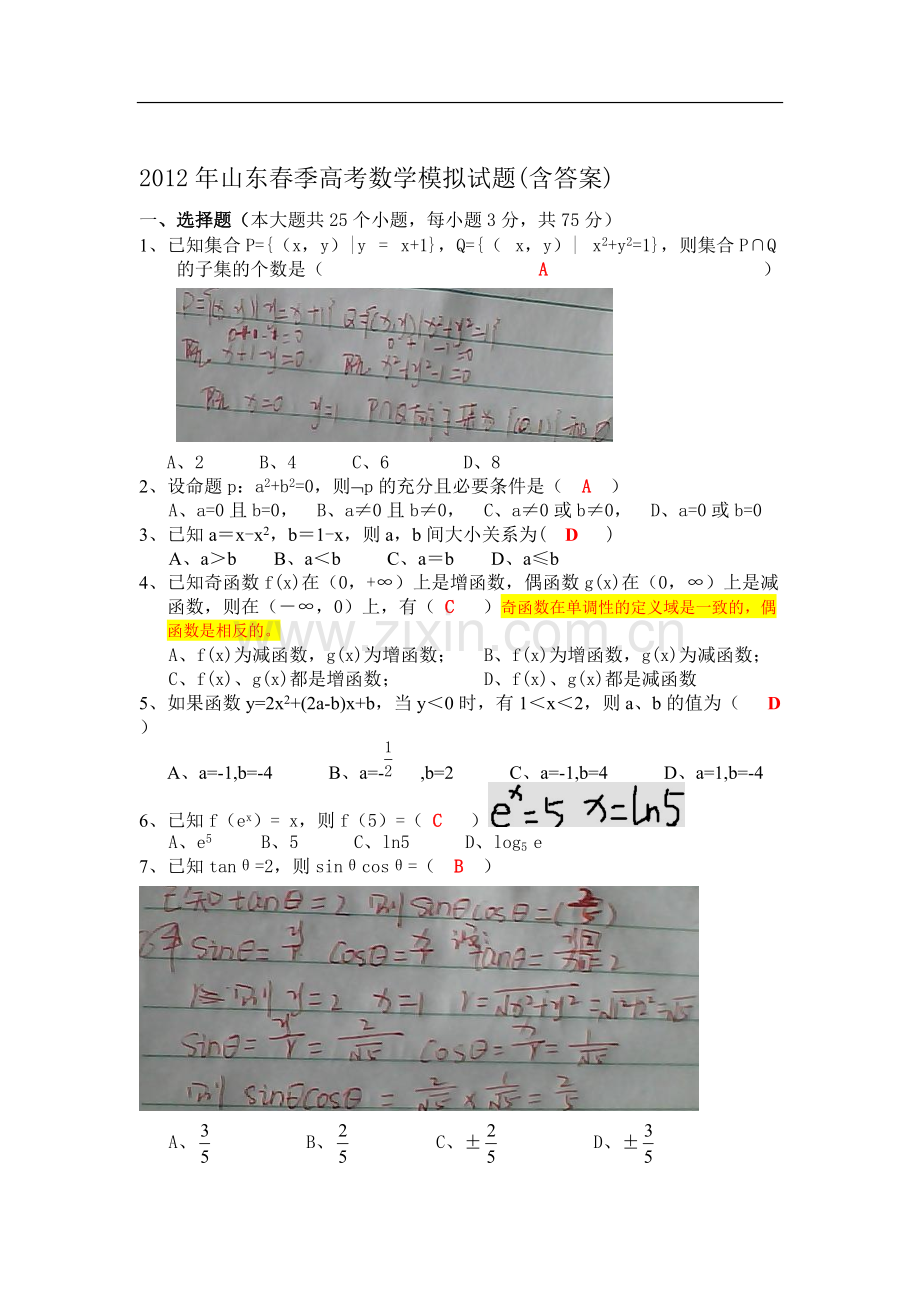 2012年山东春季高考数学模拟试题(含答案)
一、选择题（本大题共25个小题，每小题3分，共75分）
1、已知集合P={（x，y）|y = x+1}，Q={（ x，y）| x²+y²=1}，则集合P∩Q
的子集的个数是（ A ）
P={(x,y)|y=x+1} Q={(x,y)|x²+y²=1}
0+1-y=0 0+1-1=0
x+1-y=0 x²+y²-1=0
x=0 y=1 P∩Q 子集为{(0,1)}和∅
A、2 B、4 C、6 D、8
2、设命题p：a²+b²=0，则¬p的充分且必要条件是（ A ）
A、a=0且b=0， B、a≠0且b≠0， C、a≠0或b≠0， D、a=0或b=0
3、已知a＝x-x²，b＝1-x，则a，b间大小关系为( D )
A、a＞b B、a＜b C、a＝b D、a≤b
4、已知奇函数f(x)在（0，+∞）上是增函数，偶函数g(x)在（0，∞）上是减
函数，则在（－∞，0）上，有（ C ）奇函数在单调性的定义域是一致的，偶
函数是相反的。
www.zixin.com.cn
A、f(x)为减函数，g(x)为增函数； B、f(x)为增函数，g(x)为减函数；
C、f(x)、g(x)都是增函数； D、f(x)、g(x)都是减函数
5、如果函数y=2x²+(2a-b)x+b，当y＜0时，有1＜x＜2，则a、b的值为（ D
）
A、a=-1,b=-4 B、a=-1/2 ,b=2 C、a=-1,b=4 D、a=1,b=-4
6、已知f（eˣ）= x，则f（5）=（ C ）eˣ=5 x=ln5
A、e⁵ B、5 C、ln5 D、log₅ e
7、已知tanθ=2，则sinθcosθ=（ B ）
已知tanθ=2 则sinθcosθ=(2/5)
解 sinθ=y/r cosθ=x/r tanθ= =2
则y=2 x=1 r=√x²+y²=√1²+2²=√5
sinθ=y/r=2/√5 cosθ=x/r=1/√5
则 sinθcosθ=2/√5×1/√5=2/5
A、3/5 B、2/5 C、±2/5 D、±3/5